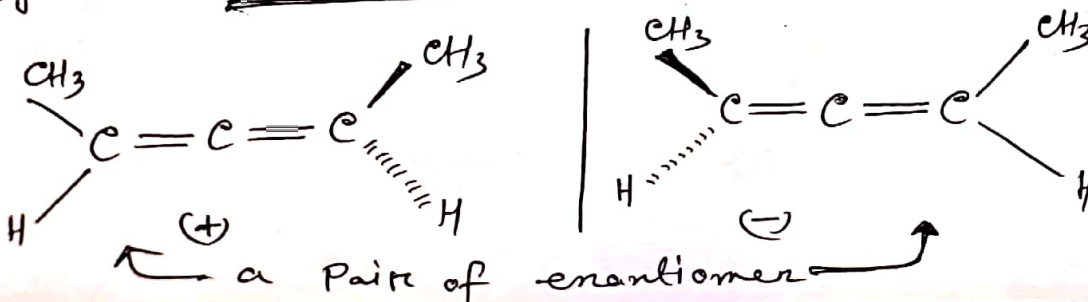 CH3 CH3 CH3 CH3
C = C = C C = C = C
H H H H
(+) (-)
a Pair of enantiomer